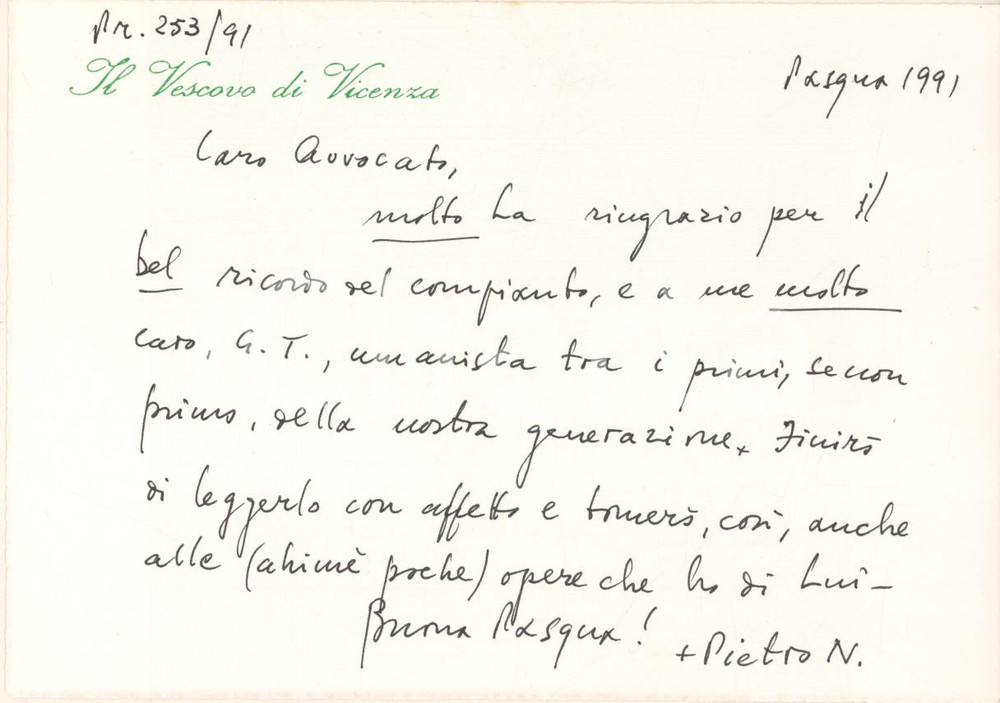 Pr. 253/91
Il Vescovo di Vicenza
Pasqua 1991
Caro Avvocato,
molto La ringrazio per il
bel ricordo del compianto, e a me molto
caro, G. T., umanista tra i primi, se non
primo, della nostra generazione. Finirò
di leggerlo con affetto e tornerò, così, anche
alle (ahimè poche) opere che ho di Lui –
Buona Pasqua!
+ Pietro N.